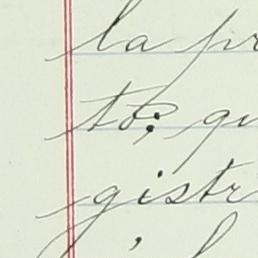 la pr
to; qu
gistr